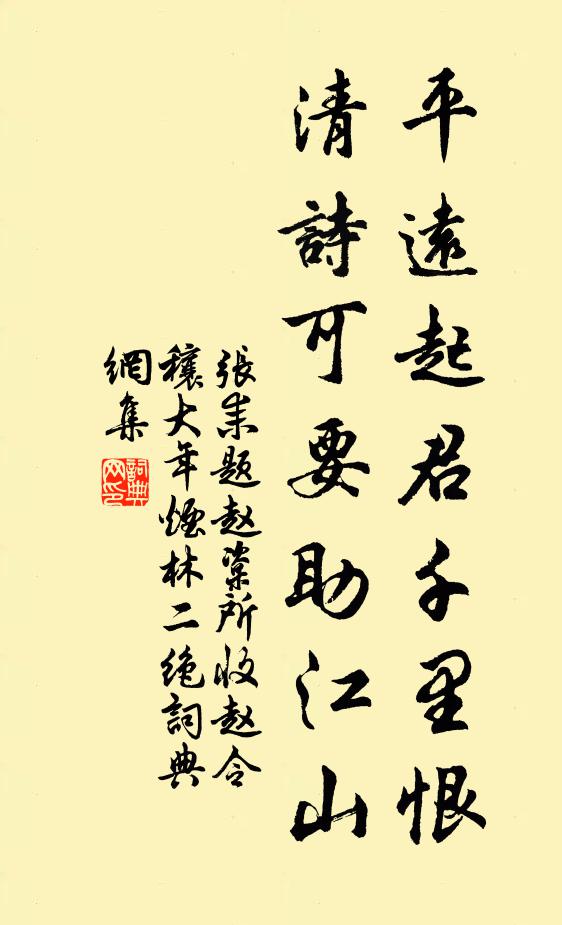 平遠起君千里恨
清詩可要助江山
張耒題趙榘所收趙令
穰大年煙林二絶詞典
網集
詞典
网印